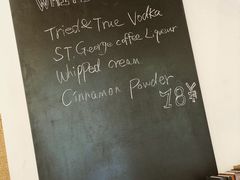 Tried & True Vodka
ST. George coffee Liqueur
Whipped cream
Cinnamon Powder
78¥